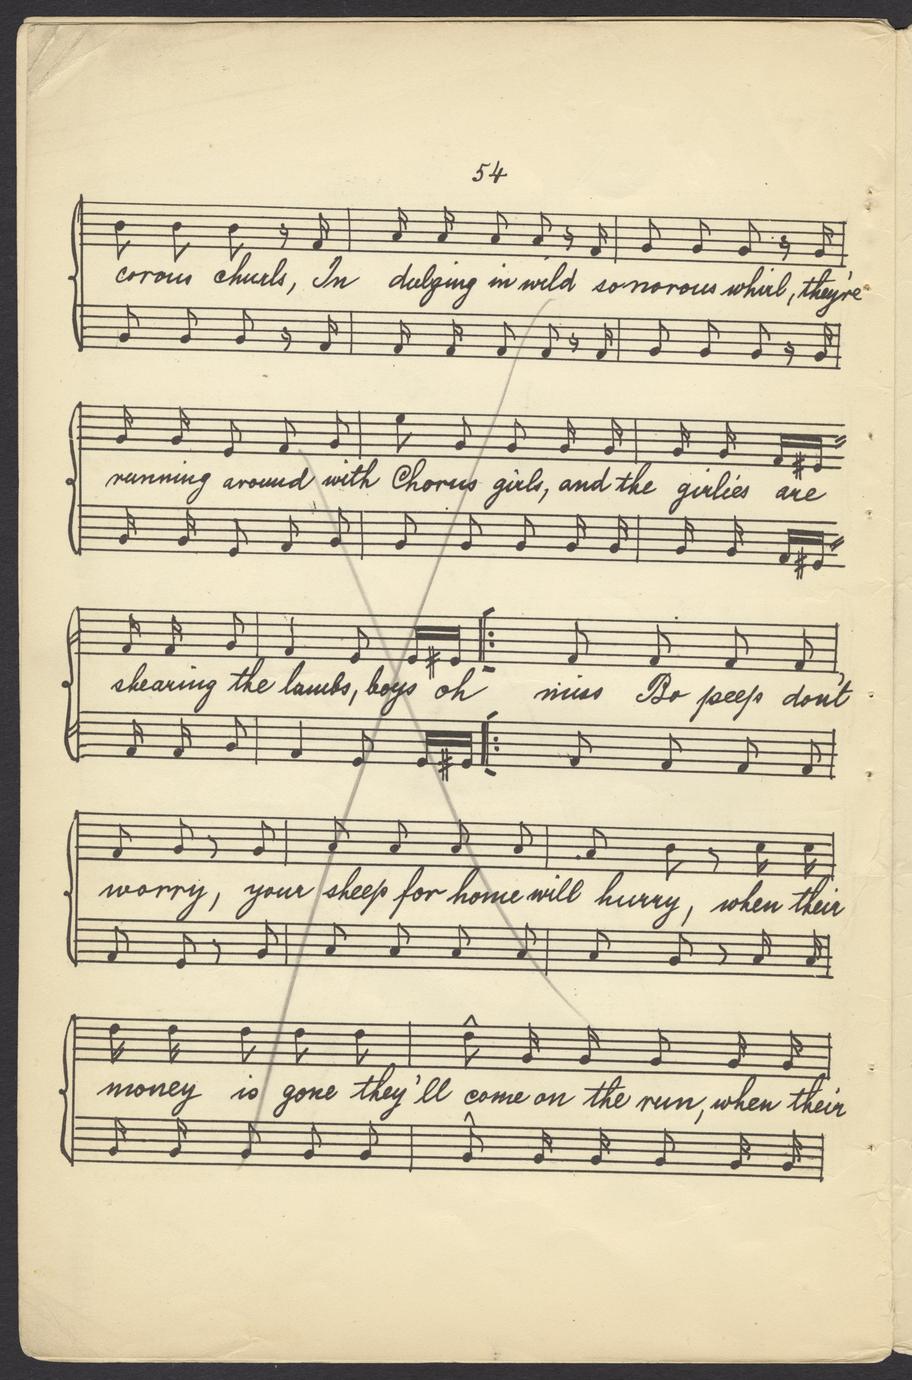 54
corous churls, In dulging in wild sonorous whirl, they're
running around with Chorus girls, and the girlies are
shearing the lambs, boys oh miss Bo peep don't
worry, your sheep for home will hurry, when their
money is gone they'll come on the run, when their